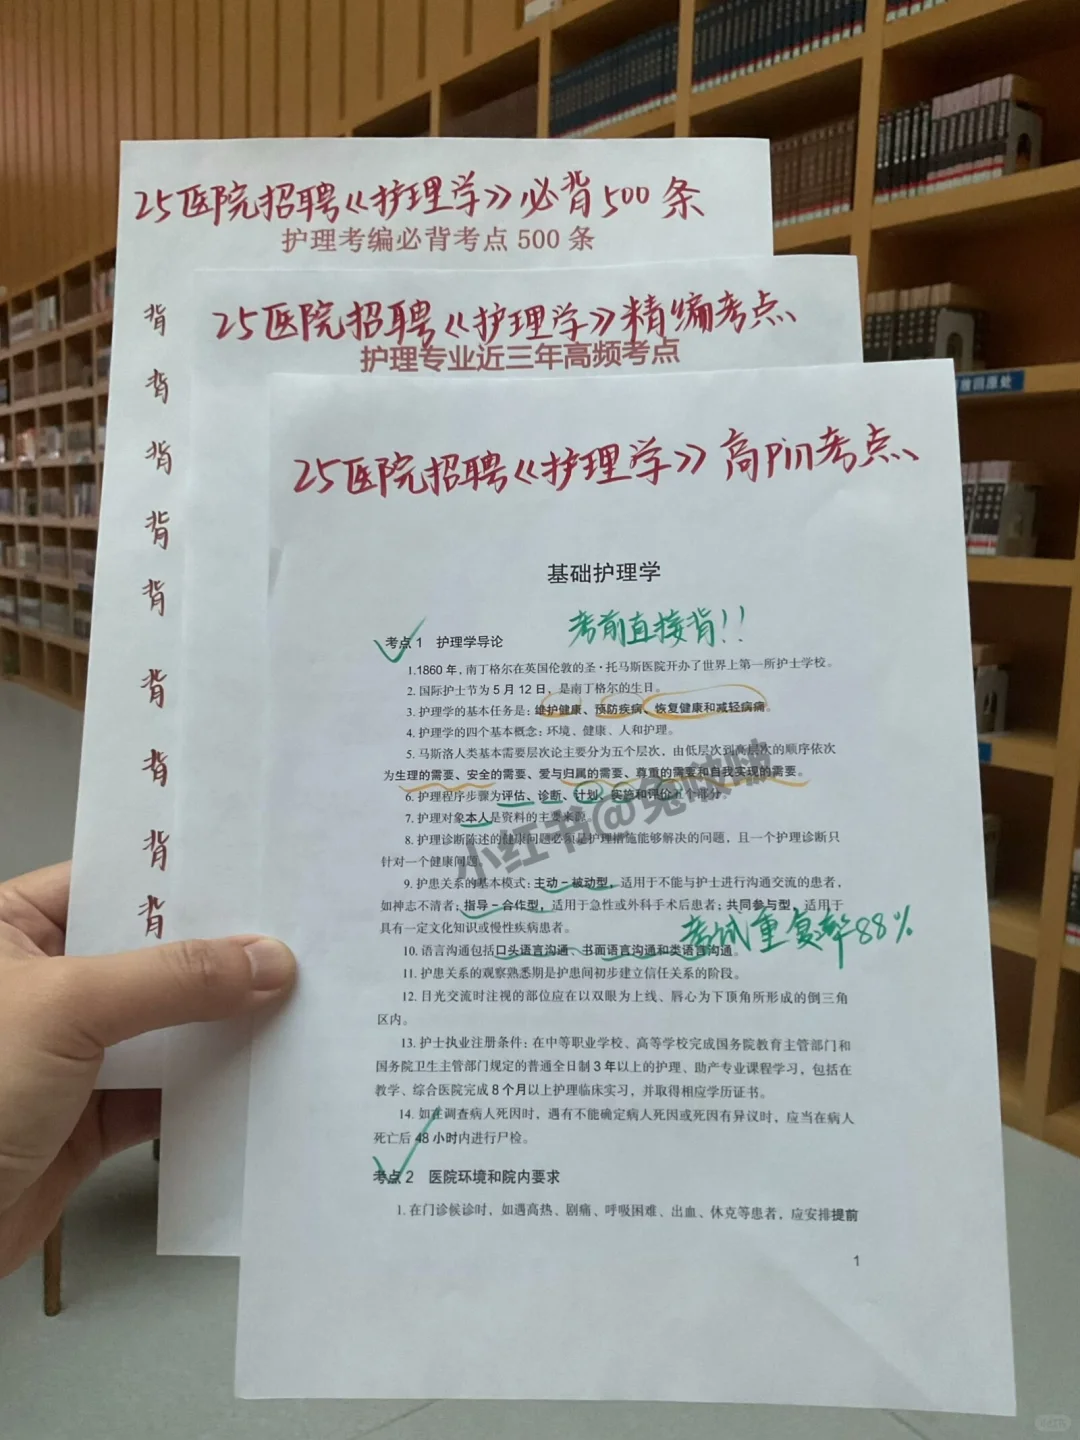 25医院招聘《护理学》必背500条
护理考编必背考点 500 条
背
背
背
背
背
背
背
背
背
25医院招聘《护理学》精编考点、
护理专业近三年高频考点
25医院招聘《护理学》高Pin考点、
基础护理学
考前直接背!!
考点 1 护理学导论
1.1860 年,南丁格尔在英国伦敦的圣·托马斯医院开办了世界上第一所护士学校。
2. 国际护士节为 5 月 12 日,是南丁格尔的生日。
3. 护理学的基本任务是:维护健康、预防疾病、恢复健康和减轻病痛。
4. 护理学的四个基本概念:环境、健康、人和护理。
5. 马斯洛人类基本需要层次论主要分为五个层次,由低层次到高层次的顺序依次
为生理的需要、安全的需要、爱与归属的需要、尊重的需要和自我实现的需要。
6. 护理程序步骤为评估、诊断、计划、实施和评价五个部分。
7. 护理对象本人是资料的主要来源。
8. 护理诊断陈述的健康问题必须是护理措施能够解决的问题,且一个护理诊断只
针对一个健康问题。
9. 护患关系的基本模式:主动－被动型,适用于不能与护士进行沟通交流的患者,
如神志不清者;指导－合作型,适用于急性或外科手术后患者;共同参与型,适用于
具有一定文化知识或慢性疾病患者。
考试重复率88%
10. 语言沟通包括口头语言沟通、书面语言沟通和类语言沟通。
11. 护患关系的观察熟悉期是护患间初步建立信任关系的阶段。
12. 目光交流时注视的部位应在以双眼为上线、唇心为下顶角所形成的倒三角
区内。
13. 护士执业注册条件:在中等职业学校、高等学校完成国务院教育主管部门和
国务院卫生主管部门规定的普通全日制 3 年以上的护理、助产专业课程学习,包括在
教学、综合医院完成 8 个月以上护理临床实习,并取得相应学历证书。
14. 如在调查病人死因时,遇有不能确定病人死因或死因有异议时,应当在病人
死亡后 48 小时内进行尸检。
考点 2 医院环境和院内要求
1. 在门诊候诊时,如遇高热、剧痛、呼吸困难、出血、休克等患者,应安排提前
1
小红书@兔啵啵